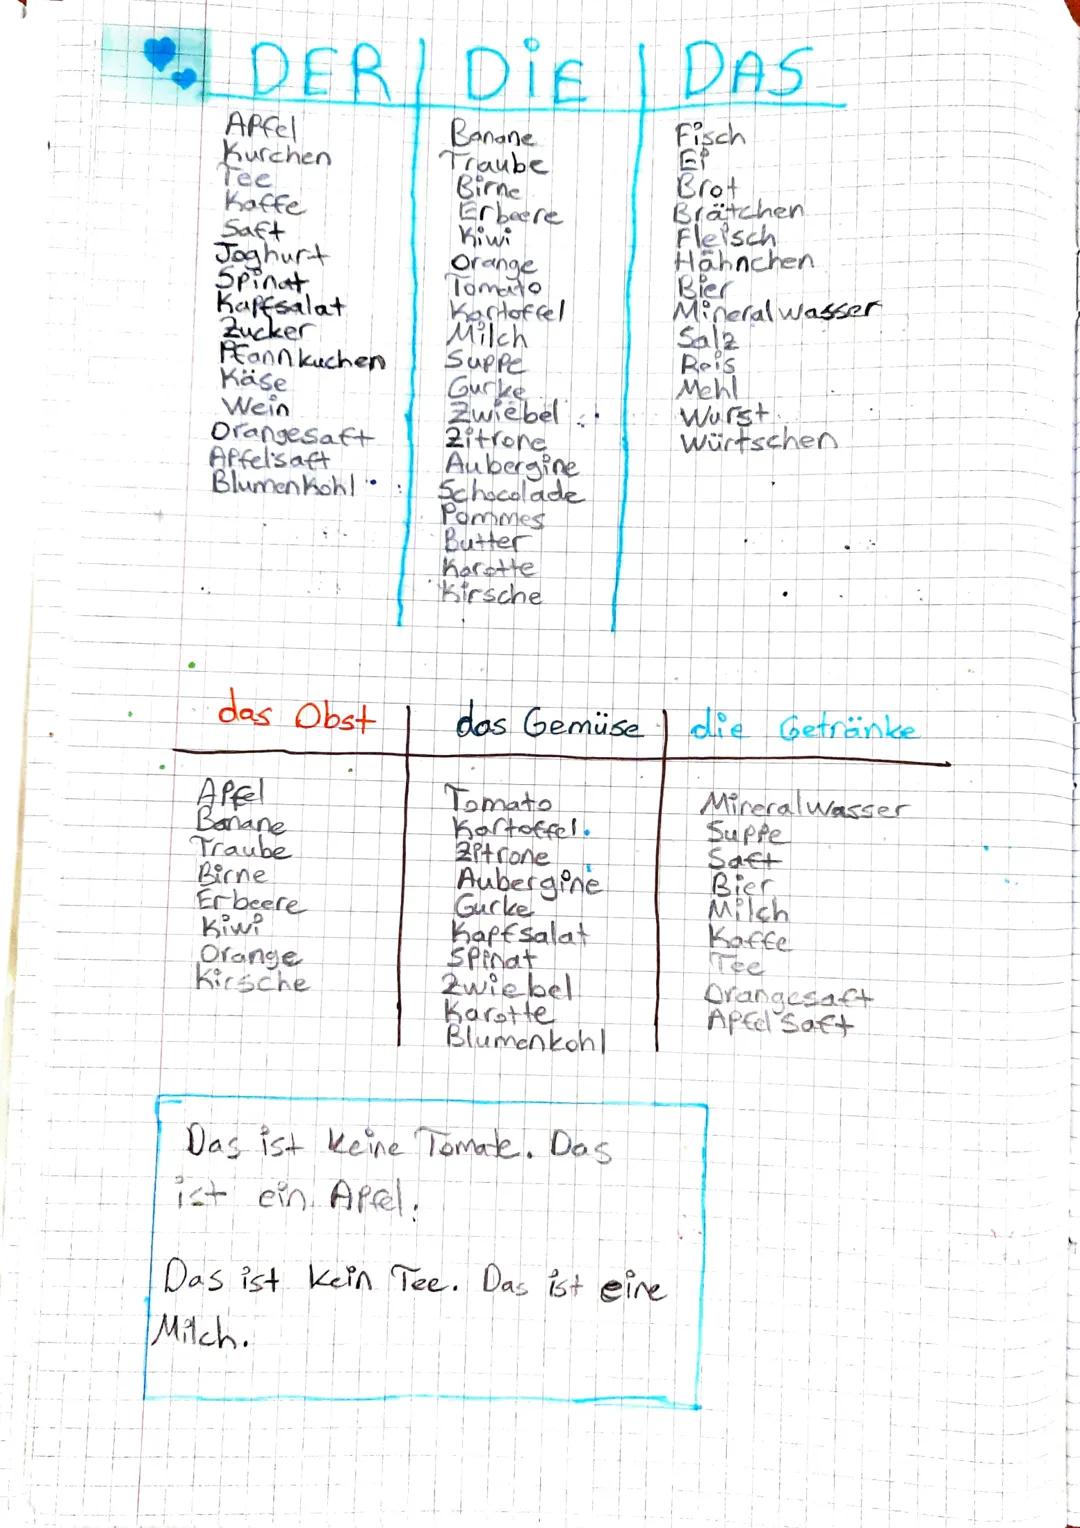 DER DIE DAS
Apfel
Kurchen
Tee
Kaffe
Saft
Joghurt
Spinat
Kapfsalat
Zucker
Pfannkuchen
Käse
Wein
Orangesaft
Apfelsaft
Blumenkohl
Banane
Traube
Birne
Erbeere
Kiwi
Orange
Tomato
Kartoffel
Milch
Suppe
Gurke
Zwiebel
Zitrone
Aubergine
Schocolade
Pommes
Butter
Karotte
Kirsche
Fisch
Ei
Brot
Brätchen
Fleisch
Hähnchen
Bier
Mineralwasser
Salz
Reis
Mehl
Wurst
Würtschen
das Obst
Apfel
Banane
Traube
Birne
Erbeere
Kiwi
Orange
Kirsche
das Gemüse
Tomato
Kartoffel.
Zitrone
Aubergine
Gurke
Kapfsalat
Spinat
Zwiebel
Karotte
Blumenkohl
die Getränke
Mineralwasser
Suppe
Saft
Bier
Milch
Kaffe
Tee
Orangesaft
Apfelsaft
Das ist keine Tomate. Das
ist ein Apfel.
Das ist kein Tee. Das ist eine
Milch.